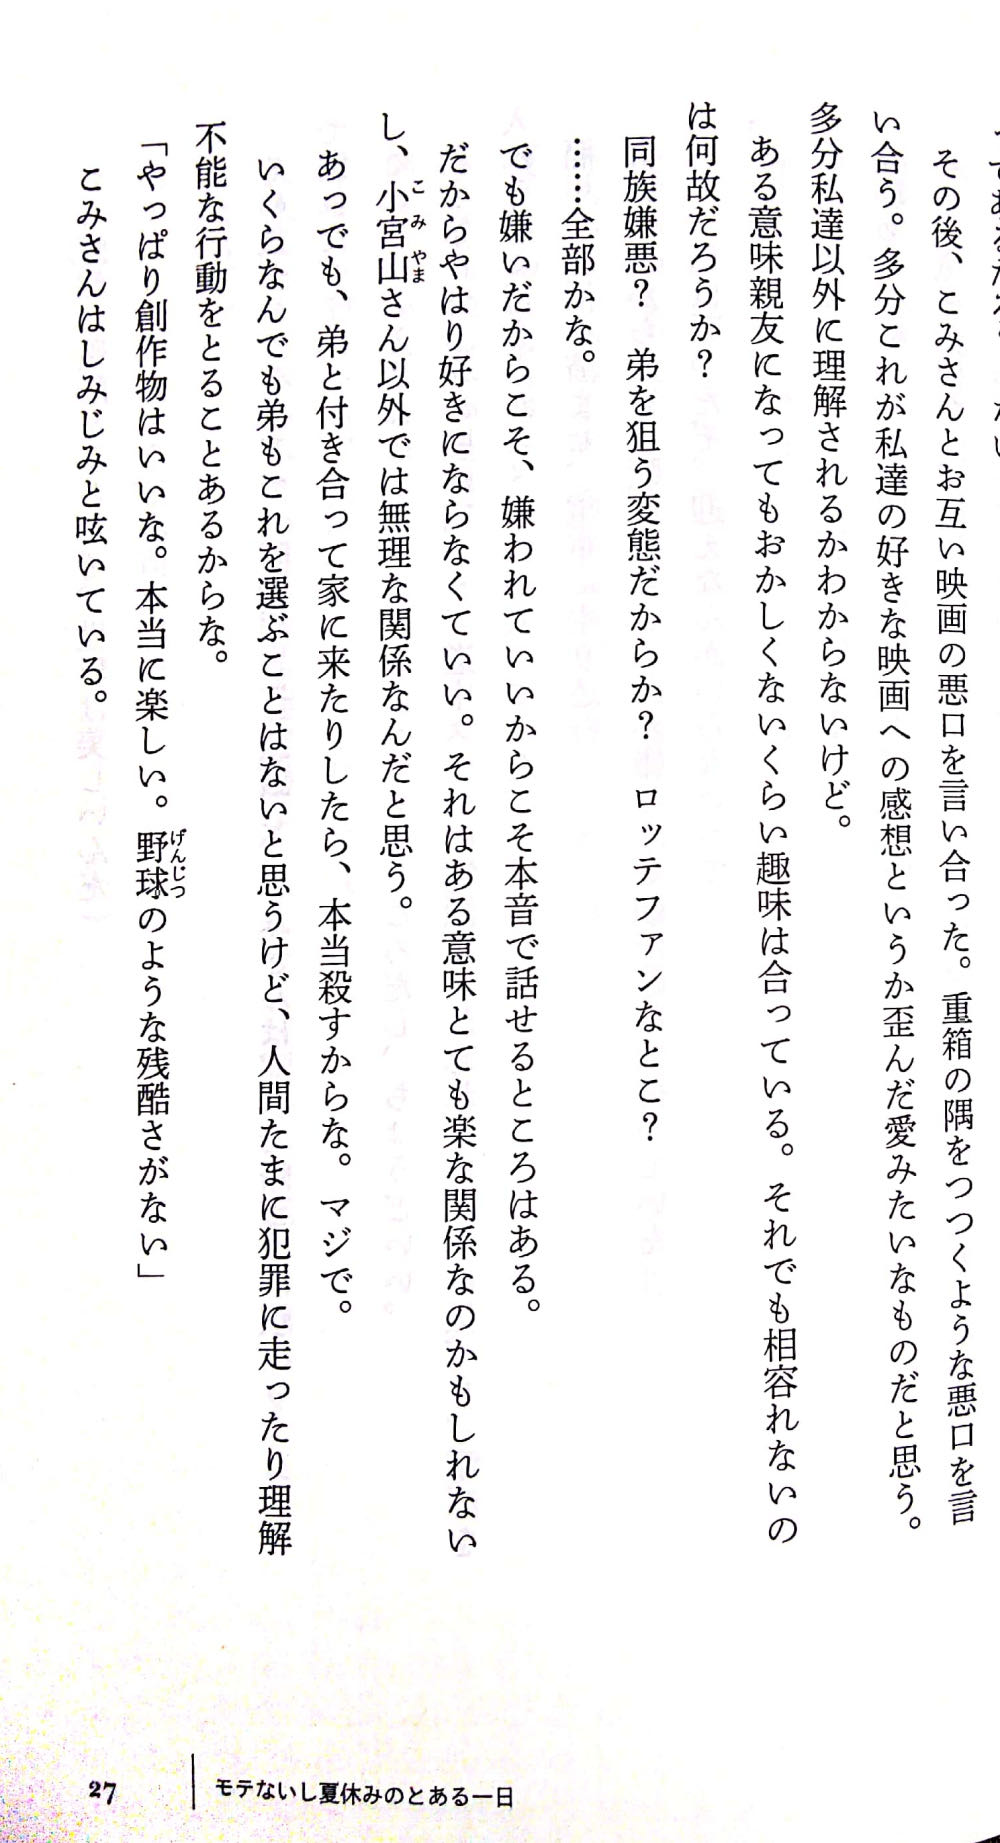 その後、こみさんとお互い映画の悪口を言い合った。重箱の隅をつつくような悪口を言
い合う。多分これが私達の好きな映画への感想というか歪んだ愛みたいなものだと思う。
多分私達以外に理解されるかわからないけど。
ある意味親友になってもおかしくないくらい趣味は合っている。それでも相容れないの
は何故だろうか？
同族嫌悪？　弟を狙う変態だからか？　ロッテファンなとこ？
……全部かな。
でも嫌いだからこそ、嫌われていいからこそ本音で話せるところはある。
だからやはり好きにならなくていい。それはある意味とても楽な関係なのかもしれない
し、小宮山さん以外では無理な関係なんだと思う。
こみやま
あっでも、弟と付き合って家に来たりしたら、本当殺すからな。マジで。
いくらなんでも弟もこれを選ぶことはないと思うけど、人間たまに犯罪に走ったり理解
不能な行動をとることあるからな。
「やっぱり創作物はいいな。本当に楽しい。野球のような残酷さがない」
げんじつ
こみさんはしみじみと呟いている。
27
モテないし夏休みのとある一日